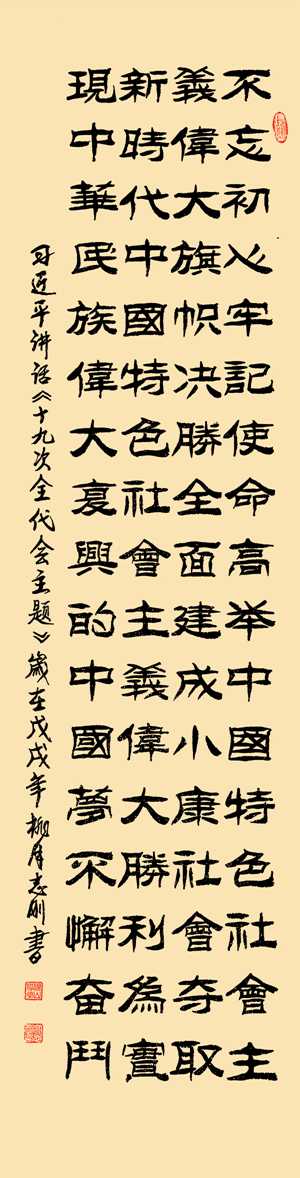 不忘初心牢記使命高举中國特色社會主
義偉大旗帜决勝全面建成小康社會夺取
新時代中國特色社會主義偉大勝利為實
現中華民族偉大复興的中國夢不懈奋鬥
习近平讲话《十九次全代会主题》歲在戊戌年柳月志刚書